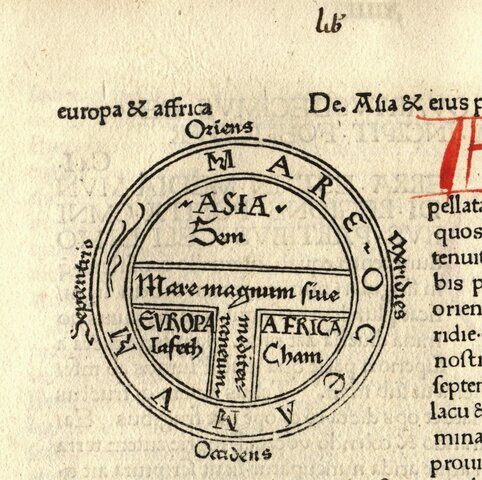 europa & affrica
De. Asia & eius p
Oriens
MARE OCCEANVM
ASIA
Sem
Septentrio
Meridies
Mare magnum siue
mediter
raneum
EVROPA
Iafeth
AFRICA
Cham
Occidens
Ca.I.
pellata
quos
tenuit
bis p
orien
ridie.
nostr
septen
lacu &
mina
proui